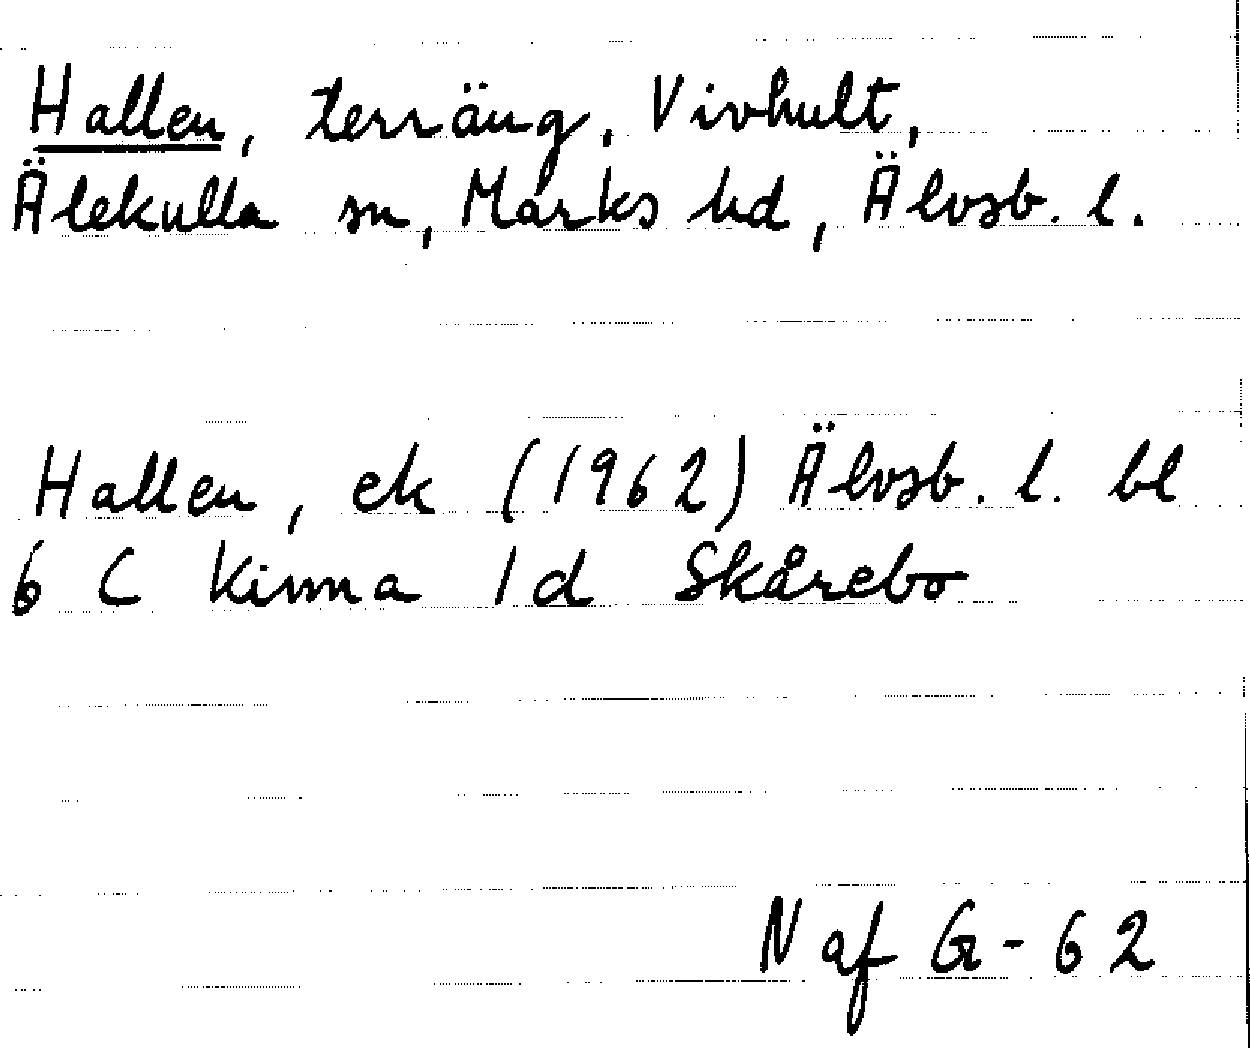 Hallen, terräng, Vivhult,
Älekulla sn, Marks hd, Älvsb. l.
Hallen, ek (1962) Älvsb. l. bl
6 C Kinna 1 d Skårebo
N af G-62